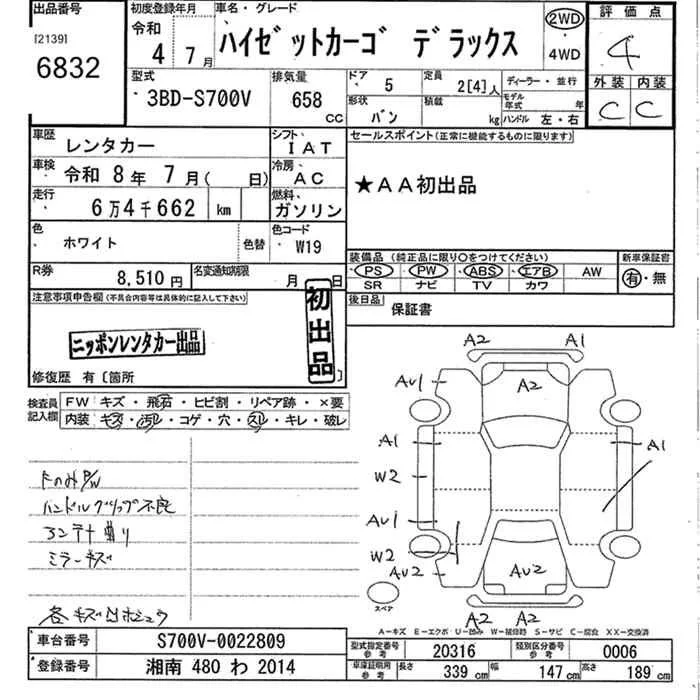 出品番号 初度登録年月 車名・グレード 評価点
[2139] 令和 ハイゼットカーゴ デラックス 2WD 4
6832 4年7月 4WD
型式 排気量 ドア 5 定員 2[4]人 ディーラー・並行 外装 内装
3BD-S700V 658 cc 形状 バン 積載 kg モデル年式 年 ハンドル 左・右 C C
車歴 レンタカー シフト IAT セールスポイント(正常に機能するものに限ります)
車検 令和 8年 7月( 日) 冷房 AC ★AA初出品
走行 6万4千662 km 燃料 ガソリン
色 ホワイト 色替 色コード W19
装備品 (純正品に限り○をつけてください) 新車保証書
PS PW ABS エアB AW 有・無
R券 8,510円 名変通知期限 月 日 SR ナビ TV カワ
注意事項申告欄(不具合内容等は具体的に記入して下さい) 後日品 保証書
初出品
ニッポンレンタカー出品
修復歴 有〔箇所 〕
検査員記入欄 FW キズ・飛石・ヒビ割・リペア跡・×要
内装 キズ・汚れ・コゲ・穴・スレ・キレ・破レ
FのみP/W
ハンドルグリップ不良
アンテナ曲り
ミラーキズ
各キズ凹ホシュウ
A2 A1
AU1 A2
A1 A1
W2
AU1
W2
AU2 AU2
スペア A2 A2
A-キズ E-エクボ U-凹み W-補修跡 S-サビ C-腐食 XX-交換済
車台番号 S700V-0022809 型式指定番号 参考 20316 類別区分番号 参考 0006
登録番号 湘南 480 わ 2014 車庫証明用 参考 長さ 339cm 幅 147cm 高さ 189cm